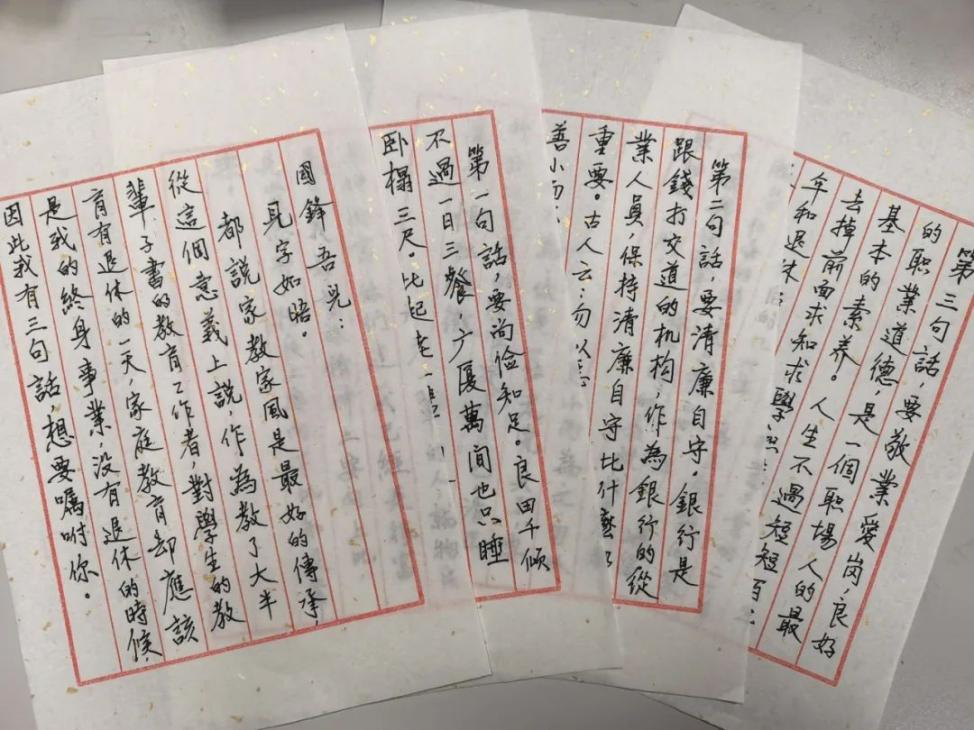 國鋒吾兒：
見字如晤。
都説家教家風是最好的傳承
從這個意義上説，作為教了大半
輩子書的教育工作者，對學生的教
育有退休的一天，家庭教育却應該
是我的終身事業，没有退休的時候，
因此我有三句話，想要囑咐你。
第一句話，要尚儉知足。良田千傾
不過一日三餐，广厦萬間也只睡
卧榻三尺。比起老一
第二句話，要清廉自守，銀行是
跟錢打交道的机构，作為銀行的從
業人員，保持清廉自守比什麽
重要。古人云：勿以
善小而
第三句話，要敬業愛岗，良好
的职業道德，是一個职場人的最
基本的素养。人生不過短短百
去掉前面求知求學
年和退休